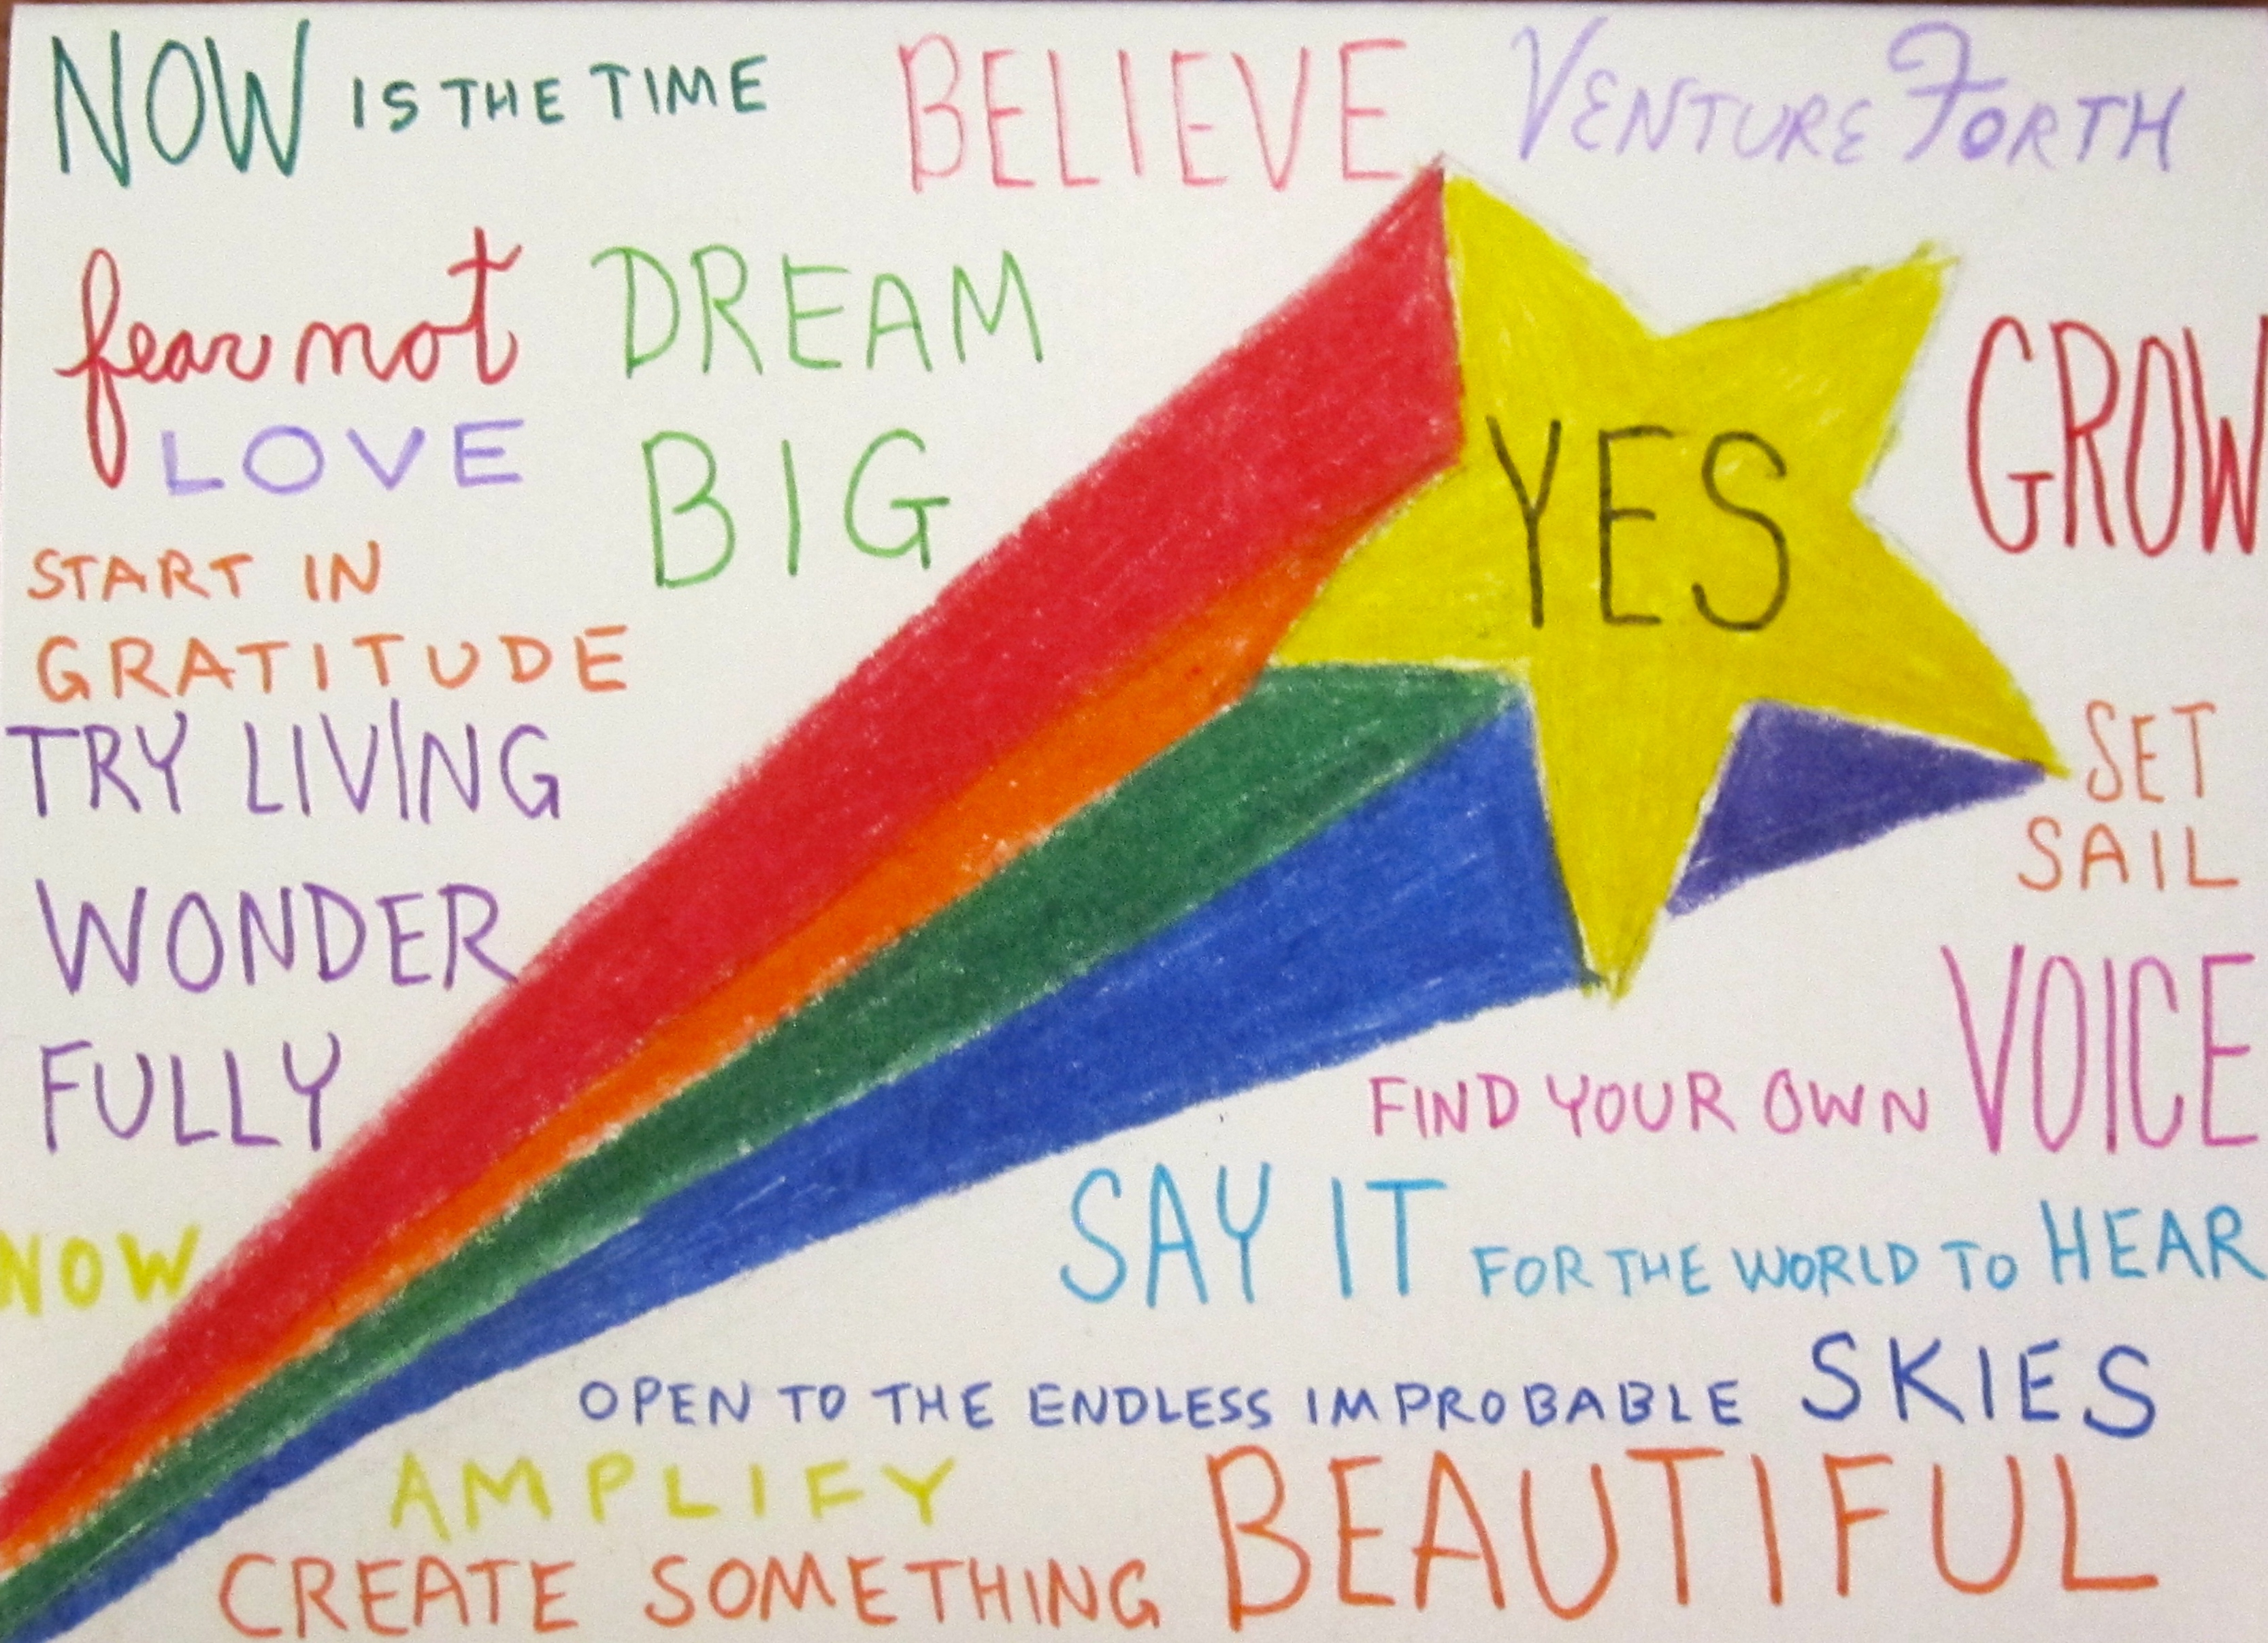 NOW IS THE TIME
BELIEVE
VENTURE FORTH
fear not
DREAM
BIG
LOVE
YES
GROW
START IN
GRATITUDE
TRY LIVING
WONDER
FULLY
NOW
SET
SAIL
FIND YOUR OWN VOICE
SAY IT FOR THE WORLD TO HEAR
OPEN TO THE ENDLESS IMPROBABLE SKIES
AMPLIFY
CREATE SOMETHING BEAUTIFUL